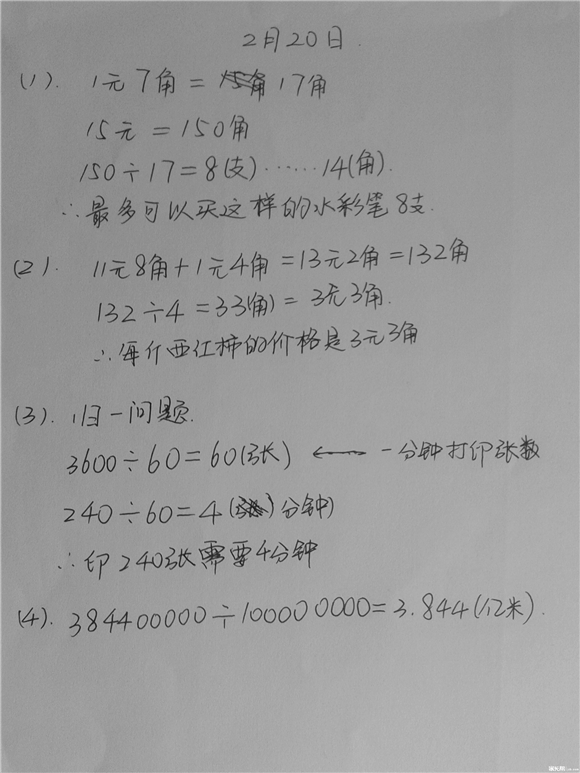 2月20日.
(1). 1元7角 = 17角
15元 = 150角
150÷17=8(支)……14(角).
∴最多可以买这样的水彩笔8支.
(2). 11元8角+1元4角=13元2角=132角
132÷4=33(角)=3元3角.
∴每斤西红柿的价格是3元3角
(3). 归一问题.
3600÷60=60(张) ← 一分钟打印张数
240÷60=4(分钟)
∴印240张需要4分钟
(4). 384400000÷100000000=3.844(亿米).